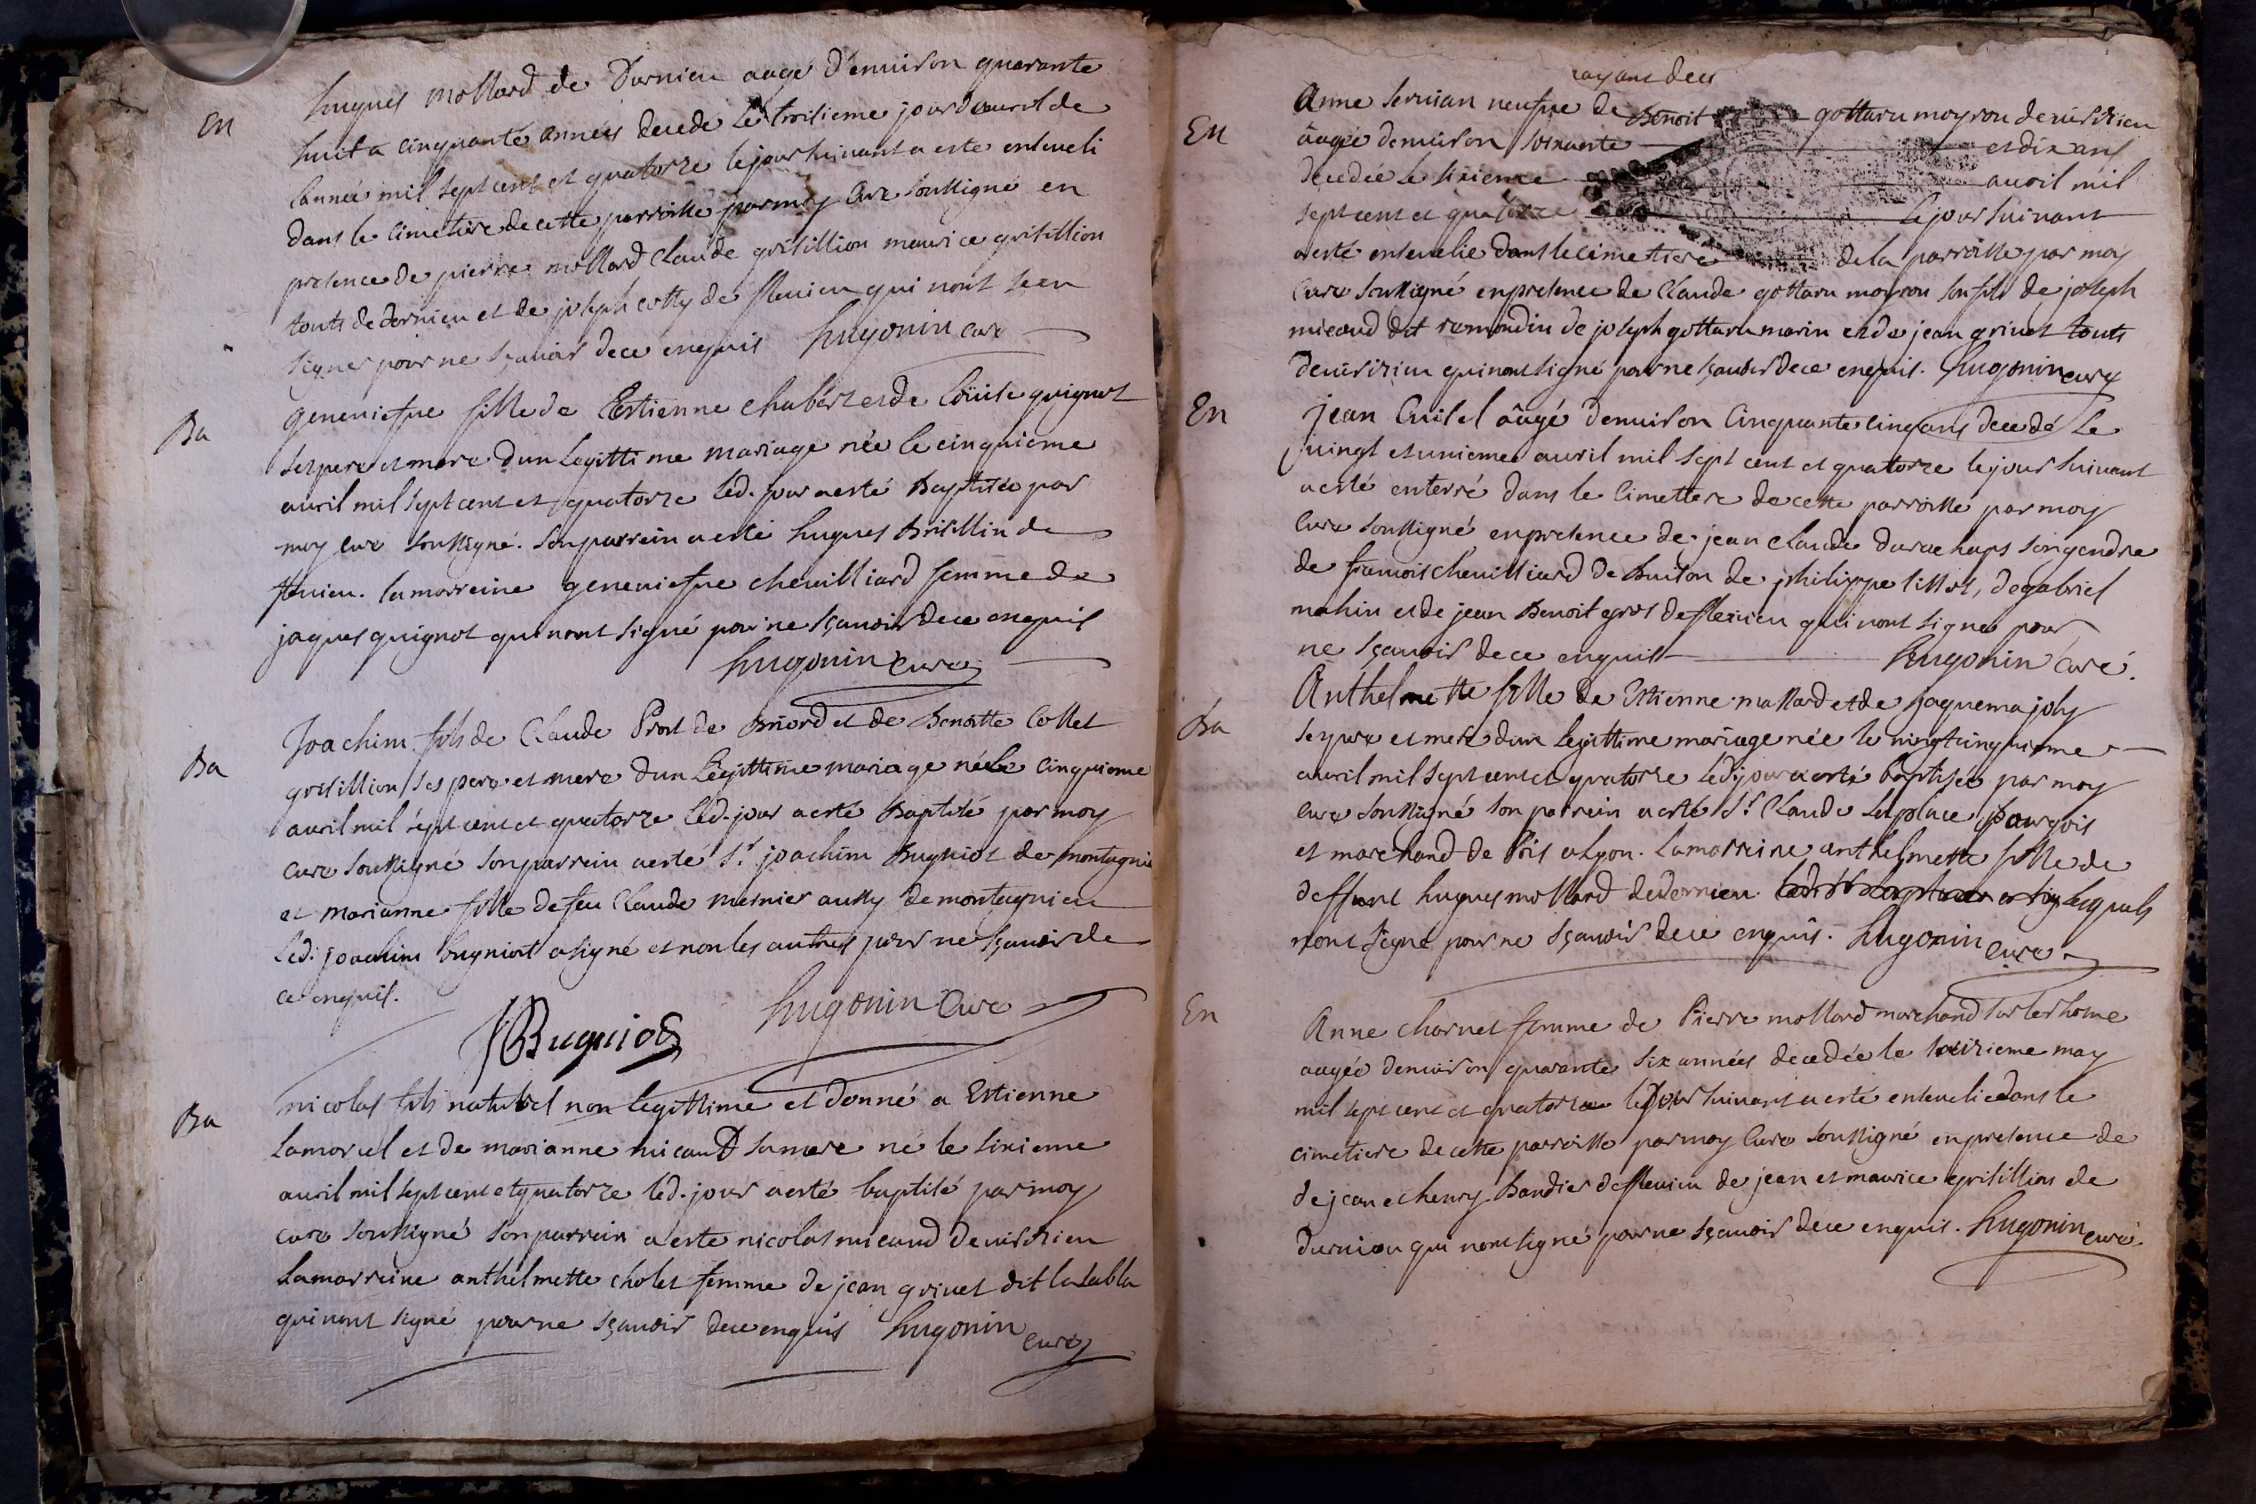 En
hugues mollard de Durnieu aagé d'enuiron quarante
huit a cinquante années decede Le troisieme jour d'auril de
l'année mil sept cent et quatorze le jour suivant a esté enseueli
dans le cimetiere de cette parroisse par moy Curé soussigné en
presence de pierre mollard Claude grisillion maurice grisillion
touts de dornieu et de joseph cotty de fleuieu qui n'ont sceu
signer pour ne sçauoir de ce enquis hugonin Curé
Ba
geneuiefue fille de Estienne chabert et de Louise quignot
ses pere et mere d'un Legittime mariage née le cinquieme
auril mil sept cent et quatorze led. jour a esté Baptisée par
moy curé soussigné. son parrein a esté hugues Brisillin de
fleuieu. la marreine geneuiefue cheuilliard femme de
jaques quignot qui n'ont signé pour ne sçauoir de ce enquis
hugonin curé
Ba
Joachim fils de Claude Prost de Briord et de Benoitte Collet
grisillion ses pere et mere d'un Légittime mariage né le cinquieme
auril mil sept cent et quatorze led. jour a esté Baptisé par moy
curé soussigné son parrein a esté Sr. joachim Bugniot de montagnieu
et marianne fille de feu Claude mesnier aussy de montagnieu
Led. joachim bugniot a signé et non les autres pour ne sçauoir de
ce enquis.
hugonin Curé
JBuguiod
Ba
nicolas fils naturel non legittime et donné a Estienne
Lamorcel et de marianne micaud sa mere né le sixieme
auril mil sept cent et quatorze led. jour a esté baptisé par moy
curé soussigné son parrein a esté nicolas micaud de uisrieu
La marreine anthelmette cholet femme de jean griuet dit la sabla
qui n'ont signé pour ne sçauoir de ce enquis hugonin
curé
En
Anne seruian neufue de Benoit gottaru moyrou de uisirieu
aagée d'enuiron soixante et dix ans
decedée le sixieme auril mil
sept cent et quatorze le jour suiuant
a esté enseuelie dans le cimetiere de la parroisse par moy
Curé soussigné en presence de Claude gottaru moyrou son fils de joseph
micaud dit ramondin de joseph gottaru marin et de jean griuet touts
de uisirieu qui n'ont signé pour ne sçauoir de ce enquis. hugonin curé
En
jean Cuisel âagé d'enuiron Cinquante cinq ans decedé Le
vingt et unieme auril mil sept cent et quatorze le jour suiuant
a esté enterré dans le Cimettere de cette parroisse par moy
Curé soussigné en presence de jean claude son gendre
de francois cheuilliard de Buison de philippe tissot, de gabriel
mahin et de jean Benoit gros de fleuieu qui n'ont signé pour
ne sçauoir de ce enquis hugonin Curé.
Ba
Anthelmette fille de Estienne mollard et de jaquema joly
ses pere et mere d'un legittime mariage née le vingt cinquieme
auril mil sept cent et quatorze led. jour a esté baptisée par moy
curé soussigné son parrein a esté Sr. Claude Laplace Bourgois
et marchand de Bois a Lyon. La marreine anthelmette fille de
deffunt hugues mollard de dornieu. lesquels
n'ont signé pour ne sçauoir de ce enquis. hugonin
curé
En
Anne charuet femme de Pierre mollard marchand sur le rhosne
aagée d'enuiron quarante six années decedée le treizieme may
mil sept cent et quatorze le jour suiuant a esté enseuelie dans le
cimetiere de cette parroisse par moy Curé soussigné en presence de
de jean et henry Bandier de fleuieu de jean et maurice grisillion de
durnieu qui n'ont signé pour ne sçauoir de ce enquis. hugonin curé.